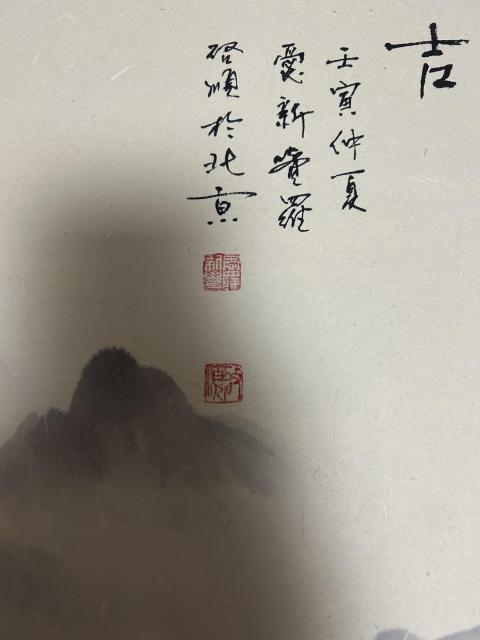 吉
壬寅仲夏
愛新覺羅
啓順於北京